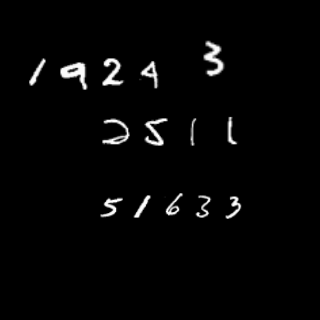 19243
2511
51633